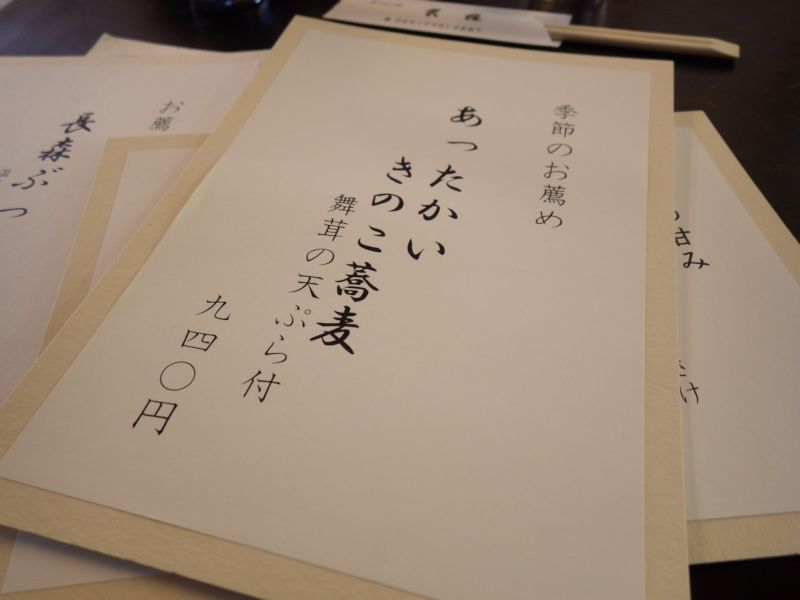 季節のお薦め
あったかい
きのこ蕎麦
舞茸の天ぷら付
九四〇円
お薦
長森ぶっ
長森
み
け